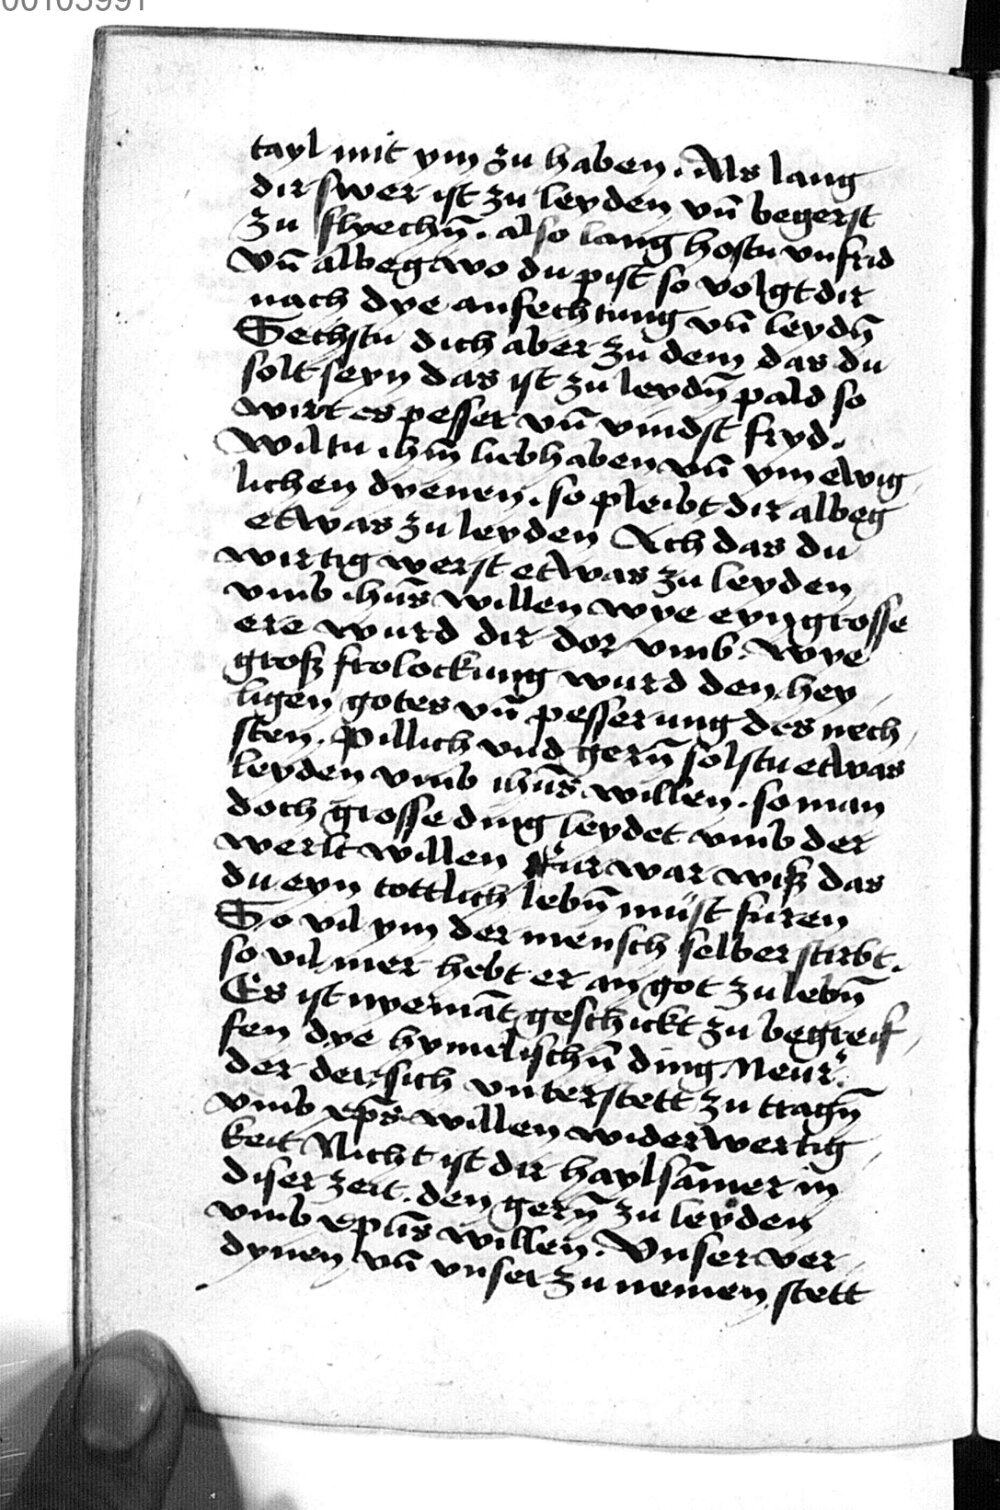 00103991
tayl mit ym zu haben. Als lang
dir swer ist zu leyden vn̄ begerst
zu flyechn̄. also lang hostu vnfrid
vn̄ albeg wo du pist so volgt dir
nach dye anfechtung vn̄ leydn̄
Sechstu dich aber zu dem das du
solt seyn das ist zu leydn̄ pald so
wirt es pesser vn̄ vindst fryd.
Wiltu ihm̄ liebhaben vn̄ ym ewig
lichen dyenen. so pleibt dir albeg
etwas zu leyden Ach das du
wirtig werst etwas zu leyden
vmb ihūs willen wye eyn grosse
ere wurd dir dor vmb. wye
groß frolockung wurd den hey
ligen gotes vn̄ pesserung des nech
sten. pillich vnd gern̄ solstu etwas
leyden vmb ihūs willen. so man
doch grosse ding leydet vmb der
werlt willen Fur war wiß das
du eyn tottlich lebn̄ müst furen
So vil ym der mensch selber stirbt.
so vil mer hebt er an got zu lebn̄
Es ist nyemāt geschickt zu begreif
fen dye hymelischn̄ ding Neur
der der sich vnterstett zu tragn̄
vmb xp̄s willen widerwertig
keit Nicht ist dir haylsām̄er in
diser zeit. den gern̄ zu leyden
vmb xpūs willen. Vnser ver
dynen vn̄ vnser zu nemen stett